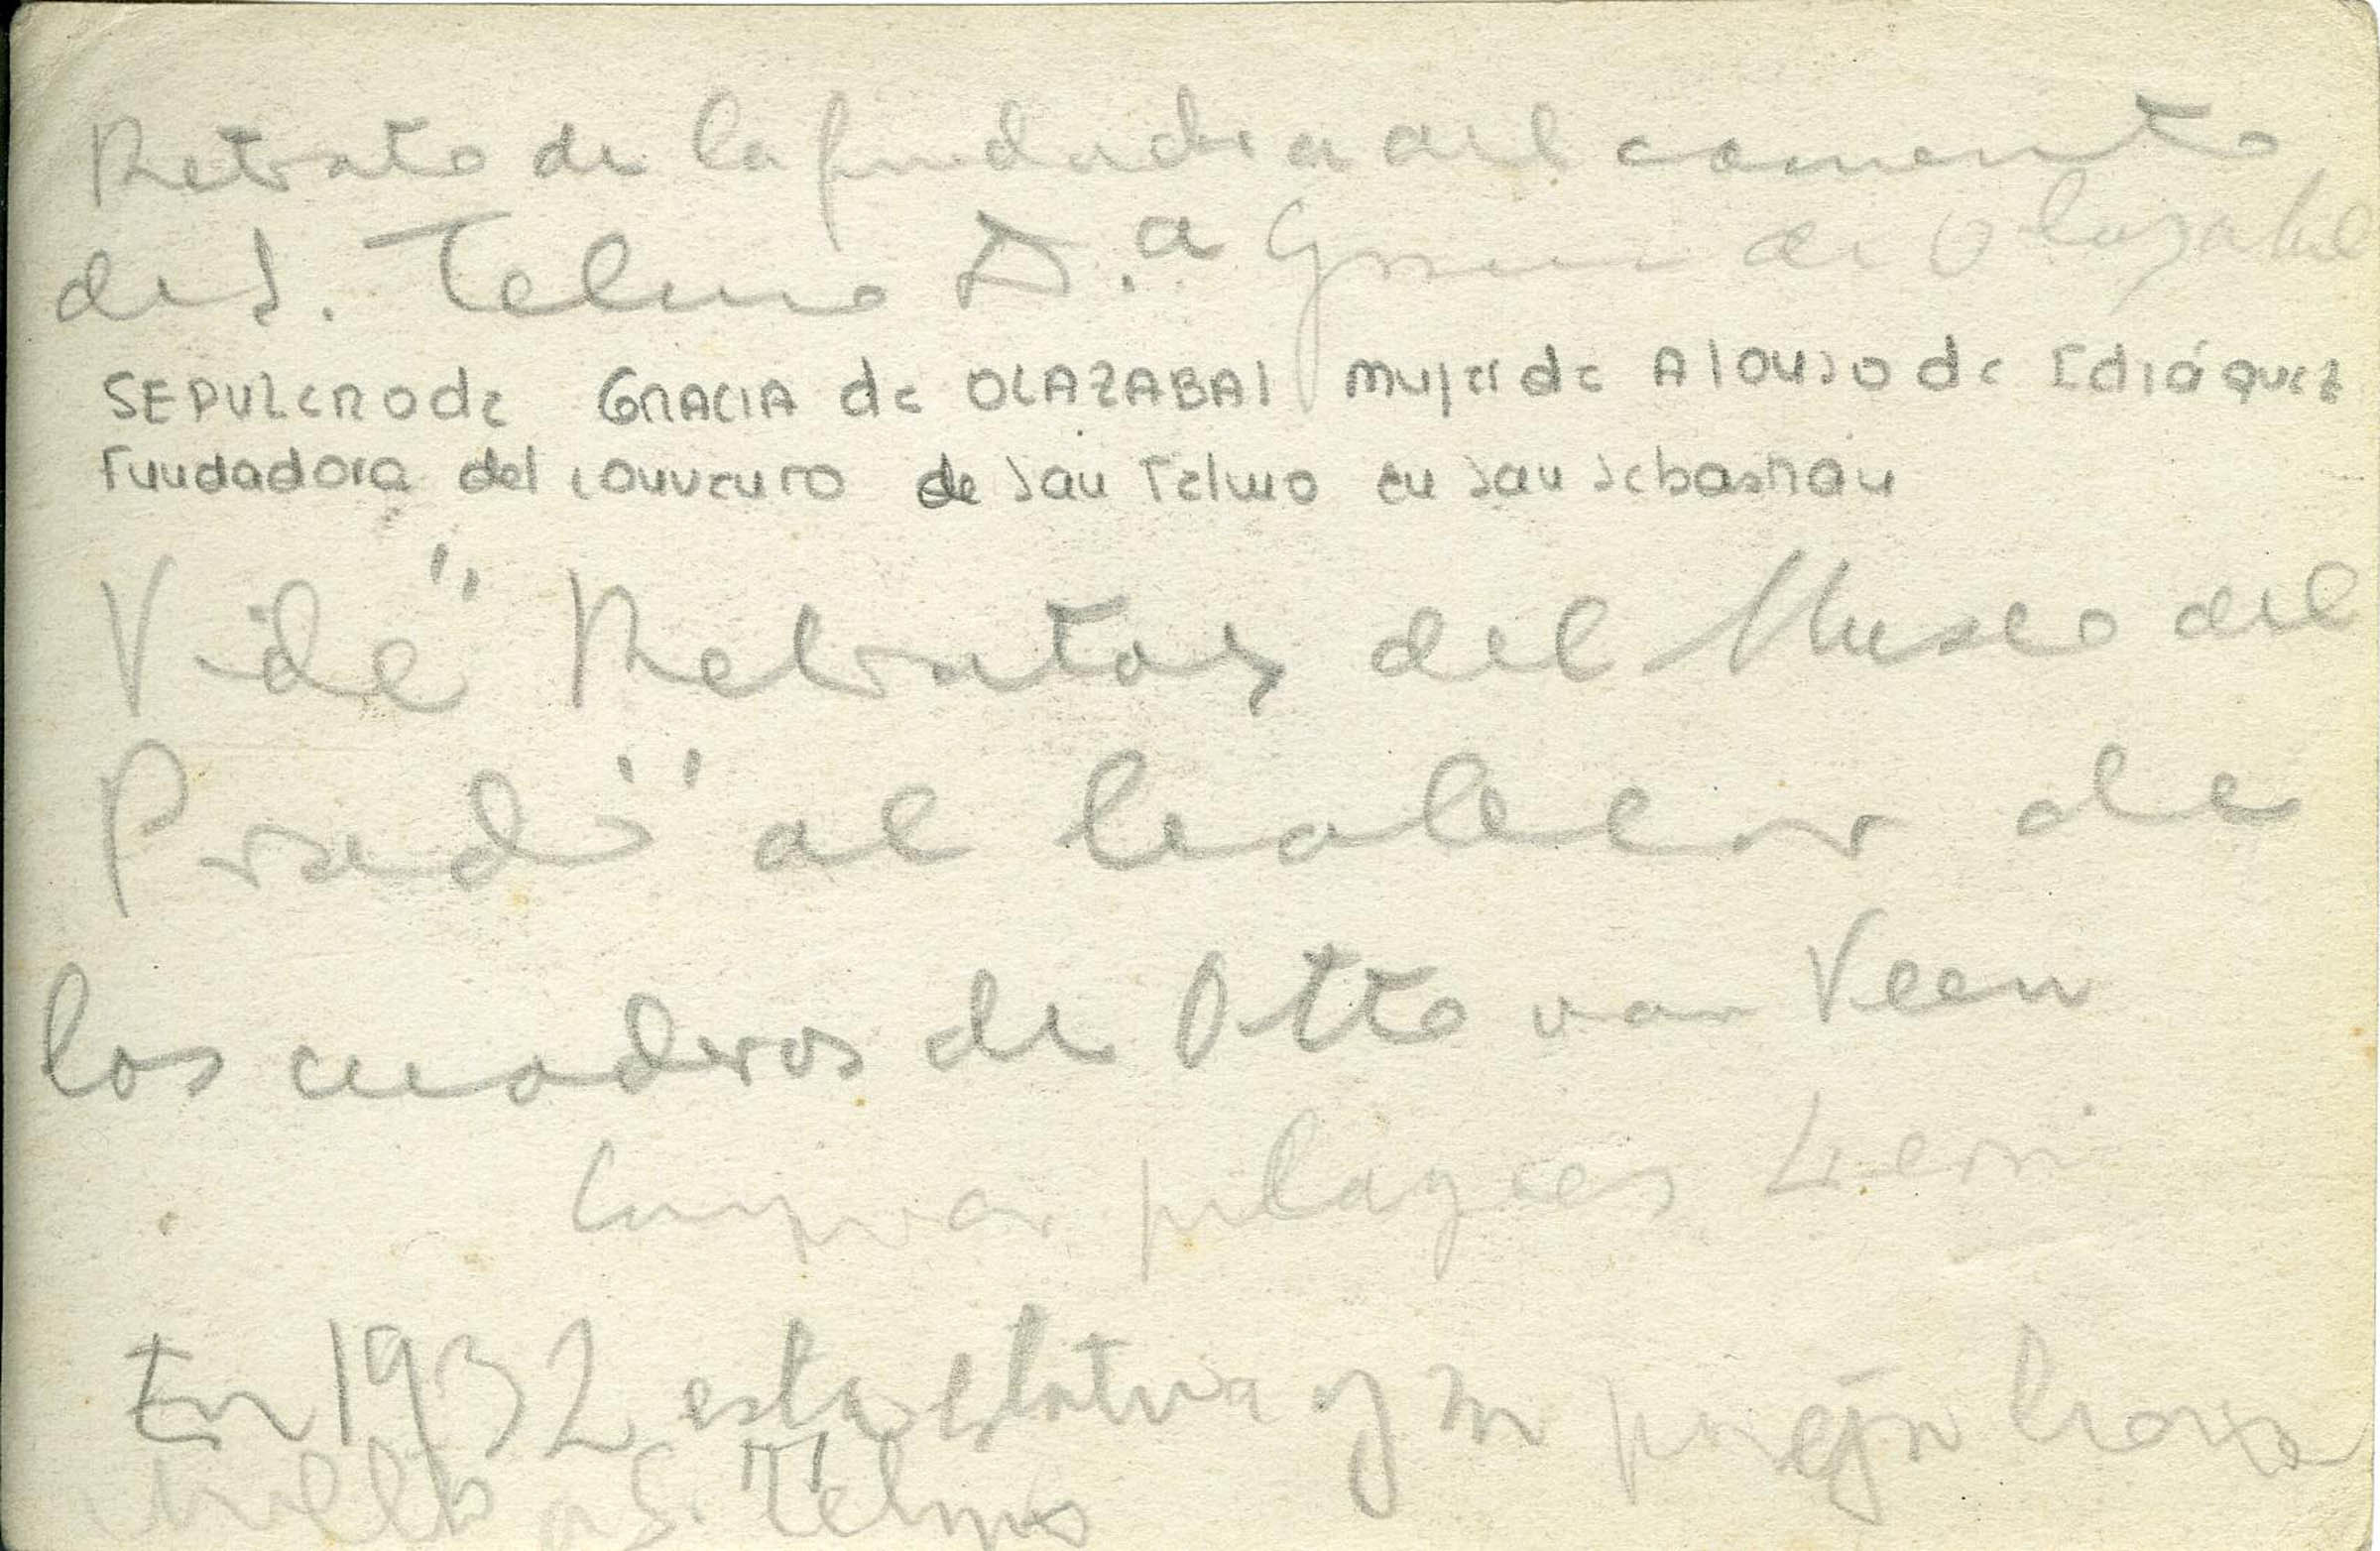 Retrato de la fundadora del convento
de S. Telmo D.ª Gracia de Olazabal
SEPULCRO de GRACIA de OLAZABAL mujer de Alonso de Idiáquez
Fundadora del convento de San Telmo en San Sebastián
Vide "Retratos del Museo del
Prado" al hablar de
los cuadros de Otto van Veen
En 1932 esta estatua y su pareja han
vuelto a S. Telmo